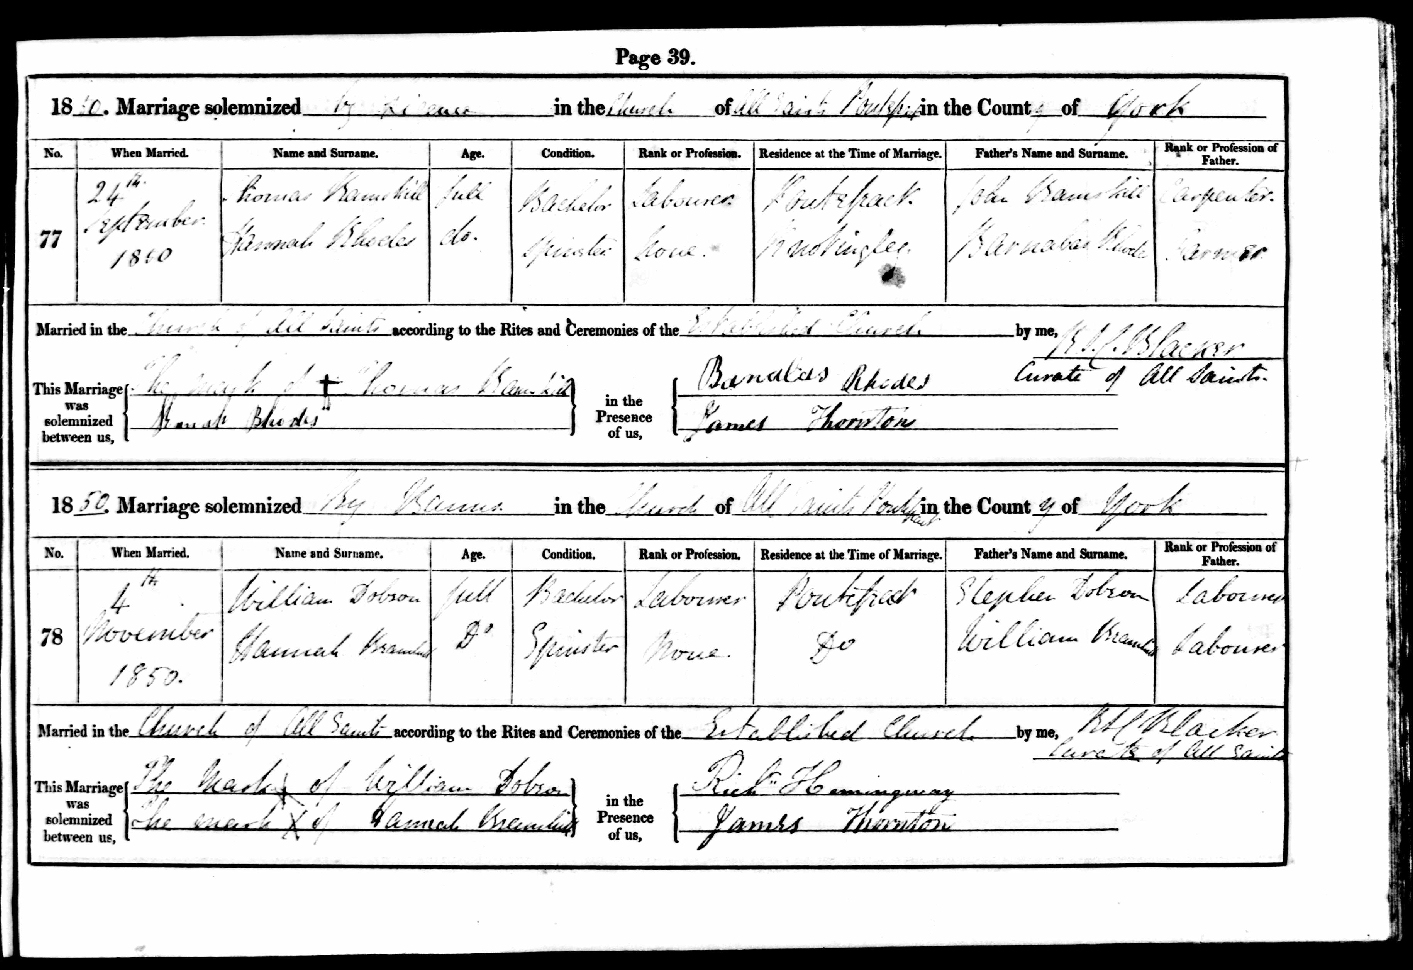 Page 39.
1850. Marriage solemnized by Licence in the Church of All Saints Pontefract in the County of York
No. When Married. Name and Surname. Age. Condition. Rank or Profession. Residence at the Time of Marriage. Father's Name and Surname. Rank or Profession of Father.
24th Thomas full Bachelor Labourer Pontefract John Carpenter
77 September Hannah Rhodes do. Spinster None. Knottingley Barnabas Rhodes Farmer
1850
Married in the Church of All Saints according to the Rites and Ceremonies of the Established Church by me, Blacker
Curate of All Saints.
This Marriage was solemnized between us, The mark of + Thomas
Hanah Rhodes
in the Presence of us, Rhodes
James Thornton
1850. Marriage solemnized By Banns in the Church of All Saints Pontefract in the County of York
No. When Married. Name and Surname. Age. Condition. Rank or Profession. Residence at the Time of Marriage. Father's Name and Surname. Rank or Profession of Father.
4th William Dobson full Bachelor Labourer Pontefract Stephen Dobson Labourer
78 November Hannah Do Spinster None. Do William Labourer
1850.
Married in the Church of All Saints according to the Rites and Ceremonies of the Established Church by me, Blacker
Curate of All Saints
This Marriage was solemnized between us, The Mark X of William Dobson
The mark X of Hannah
in the Presence of us, Richd Hemingway
James Thornton